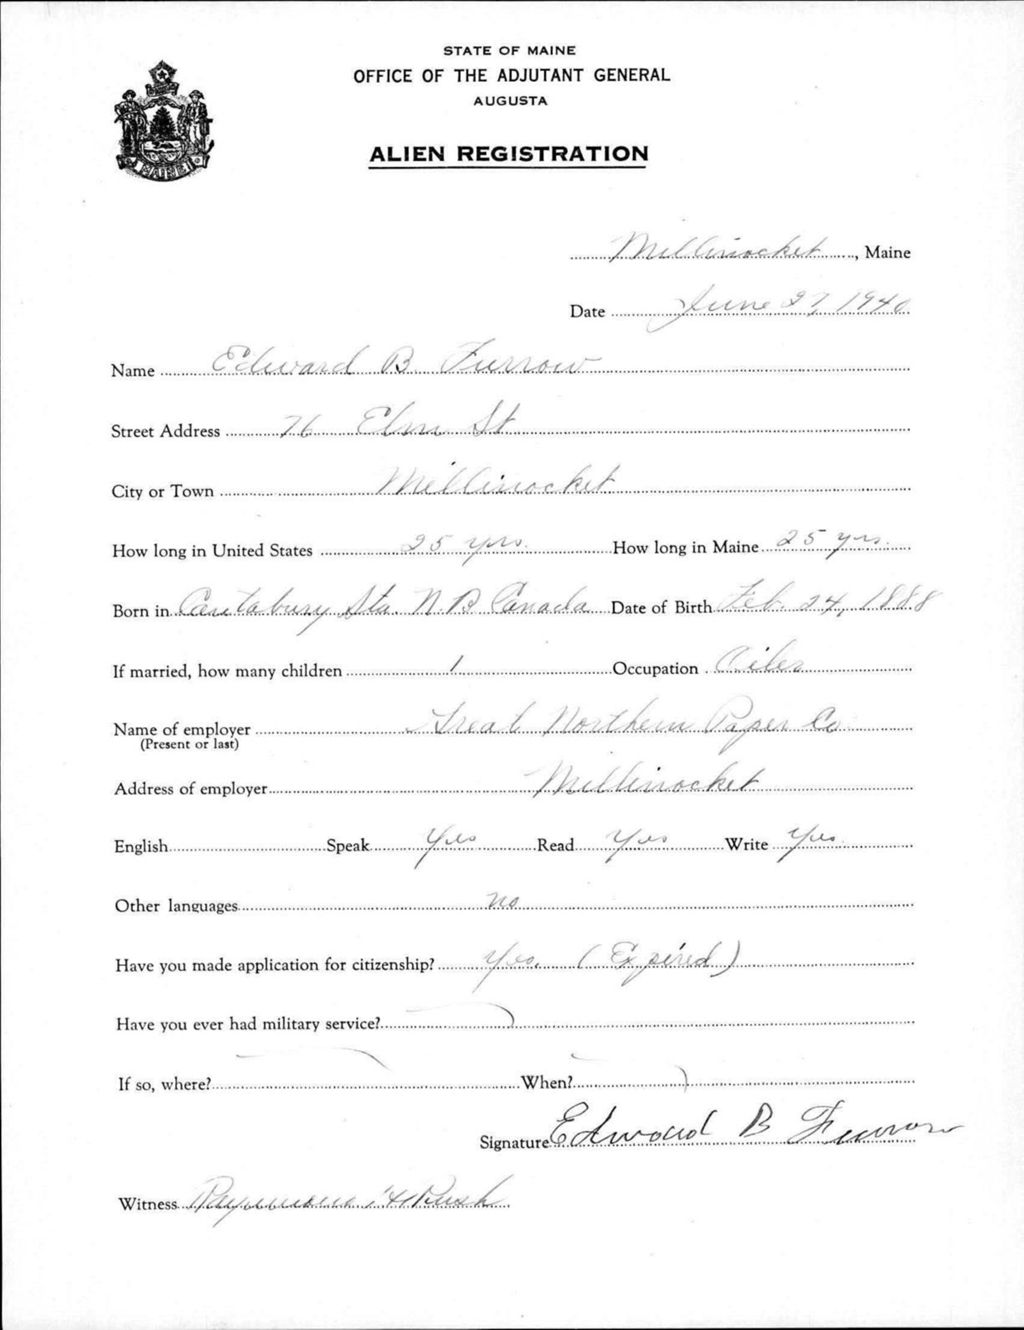 STATE OF MAINE
OFFICE OF THE ADJUTANT GENERAL
AUGUSTA
ALIEN REGISTRATION
MAINE
Millinocket, Maine
Date June 27, 1940
Name Edward B. Furrow
Street Address 76 Elm St
City or Town Millinocket
How long in United States 25 yrs. How long in Maine 25 yrs.
Born in Cantabury Sta. N.B. Canada Date of Birth Feb. 24, 1888
If married, how many children 1 Occupation Oiler
Name of employer Great Northern Paper Co
(Present or last)
Address of employer Millinocket
English Speak Yes Read Yes Write Yes
Other languages no
Have you made application for citizenship? Yes. (Expired)
Have you ever had military service?
If so, where? When?
Signature Edward B Furrow
Witness Raymond H Rush